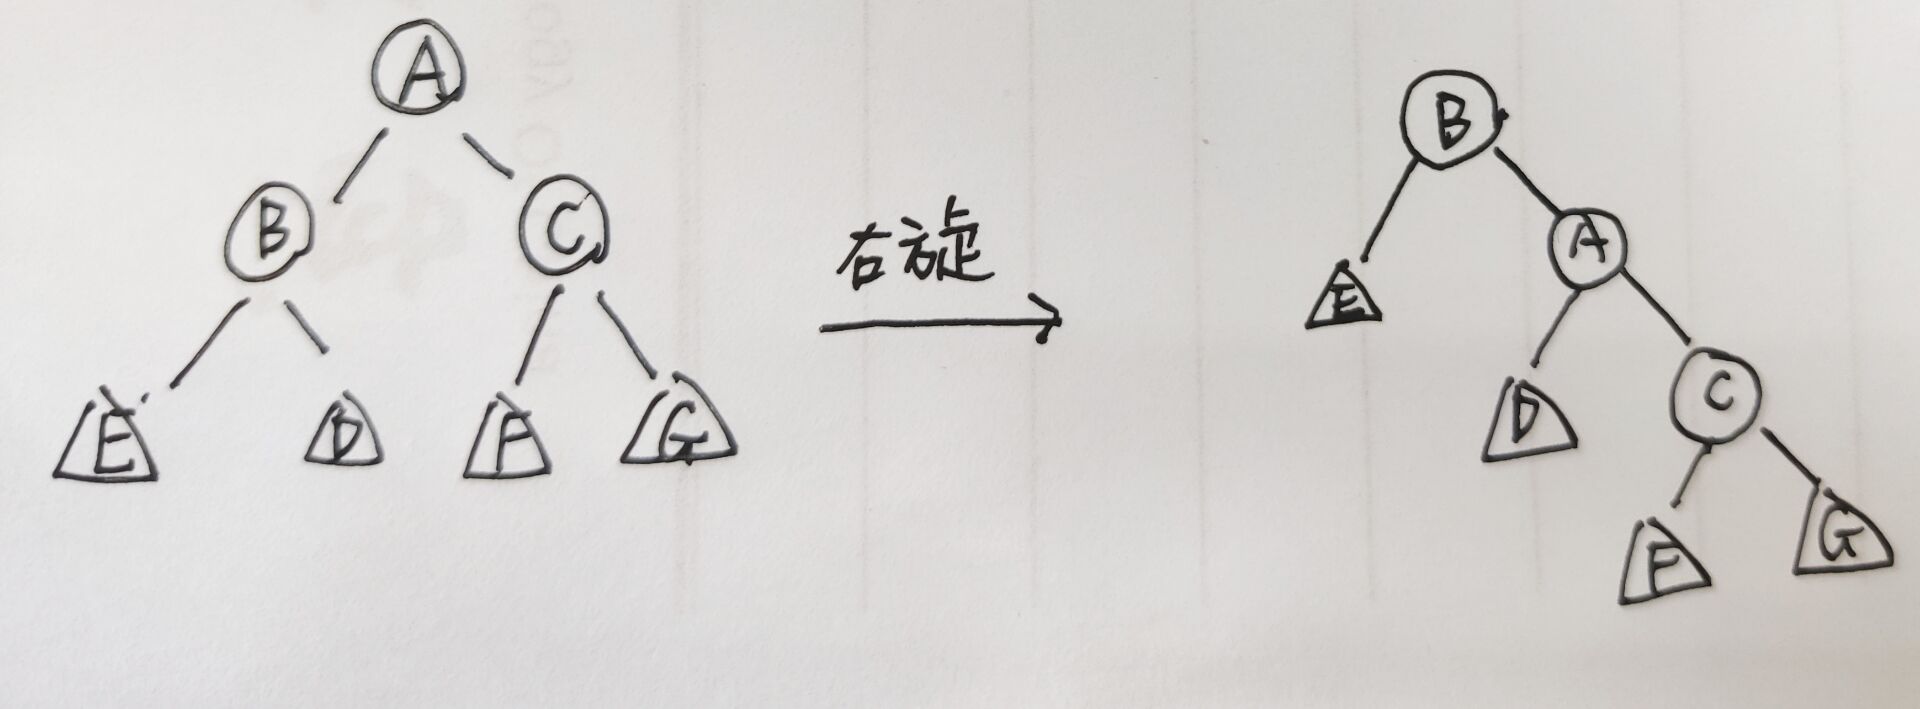 A
B
C
E
D
F
G
右旋
B
A
E
C
D
F
G